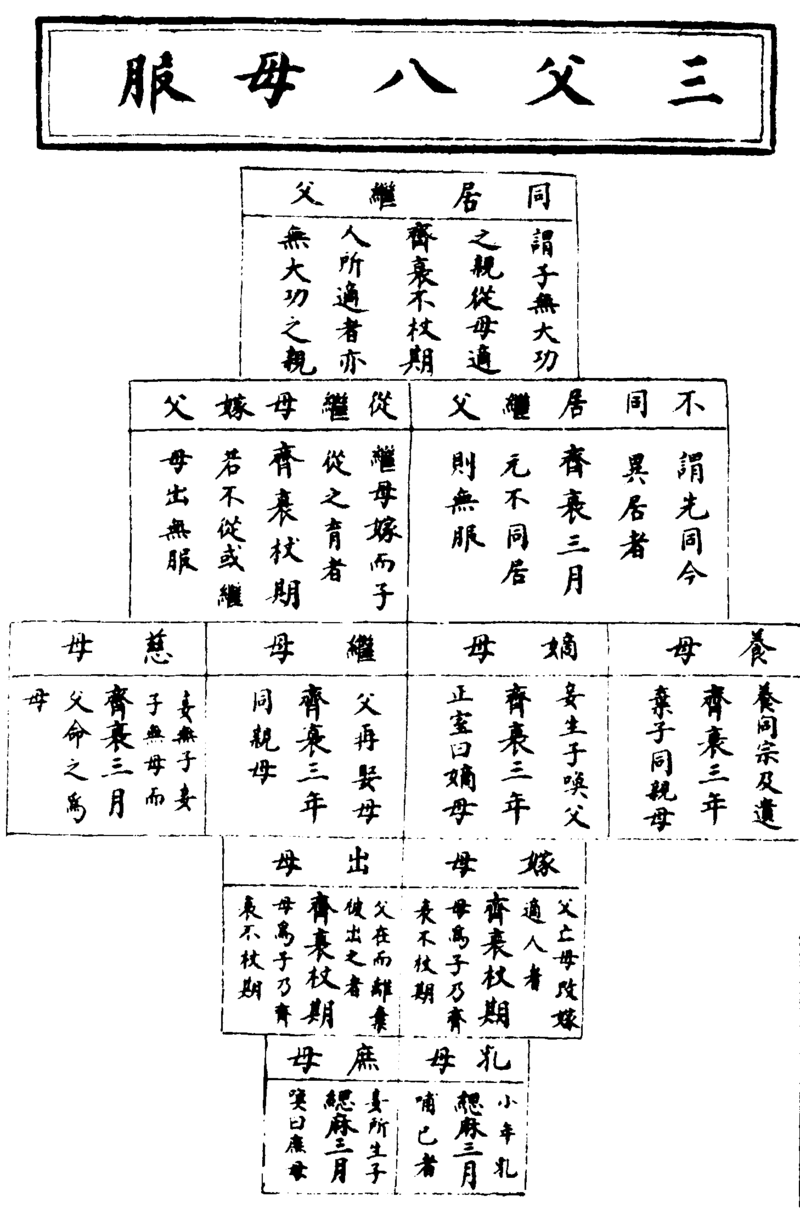 三父八母服
同居繼父
謂子無大功
之親從母適
齊衰不杖期
人所適者亦
無大功之親
不同居繼父
謂先同今
異居者
齊衰三月
元不同居
則無服
從繼母嫁父
繼母嫁而子
從之育者
齊衰杖期
若不從或繼
母出無服
養母
養同宗及遺
齊衰三年
棄子同親母
嫡母
妾生子喚父
齊衰三年
正室曰嫡母
繼母
父再娶母
齊衰三年
同親母
慈母
妾無子妾
子無母而
齊衰三月
父命之為
母
嫁母
父亡母改嫁
適人者
齊衰杖期
母爲子乃齊
衰不杖期
出母
父在而離棄
彼出之者
齊衰杖期
母爲子乃齊
衰不杖期
乳母
小年乳
緦麻三月
哺己者
庶母
妾所生子
緦麻三月
喚曰庶母